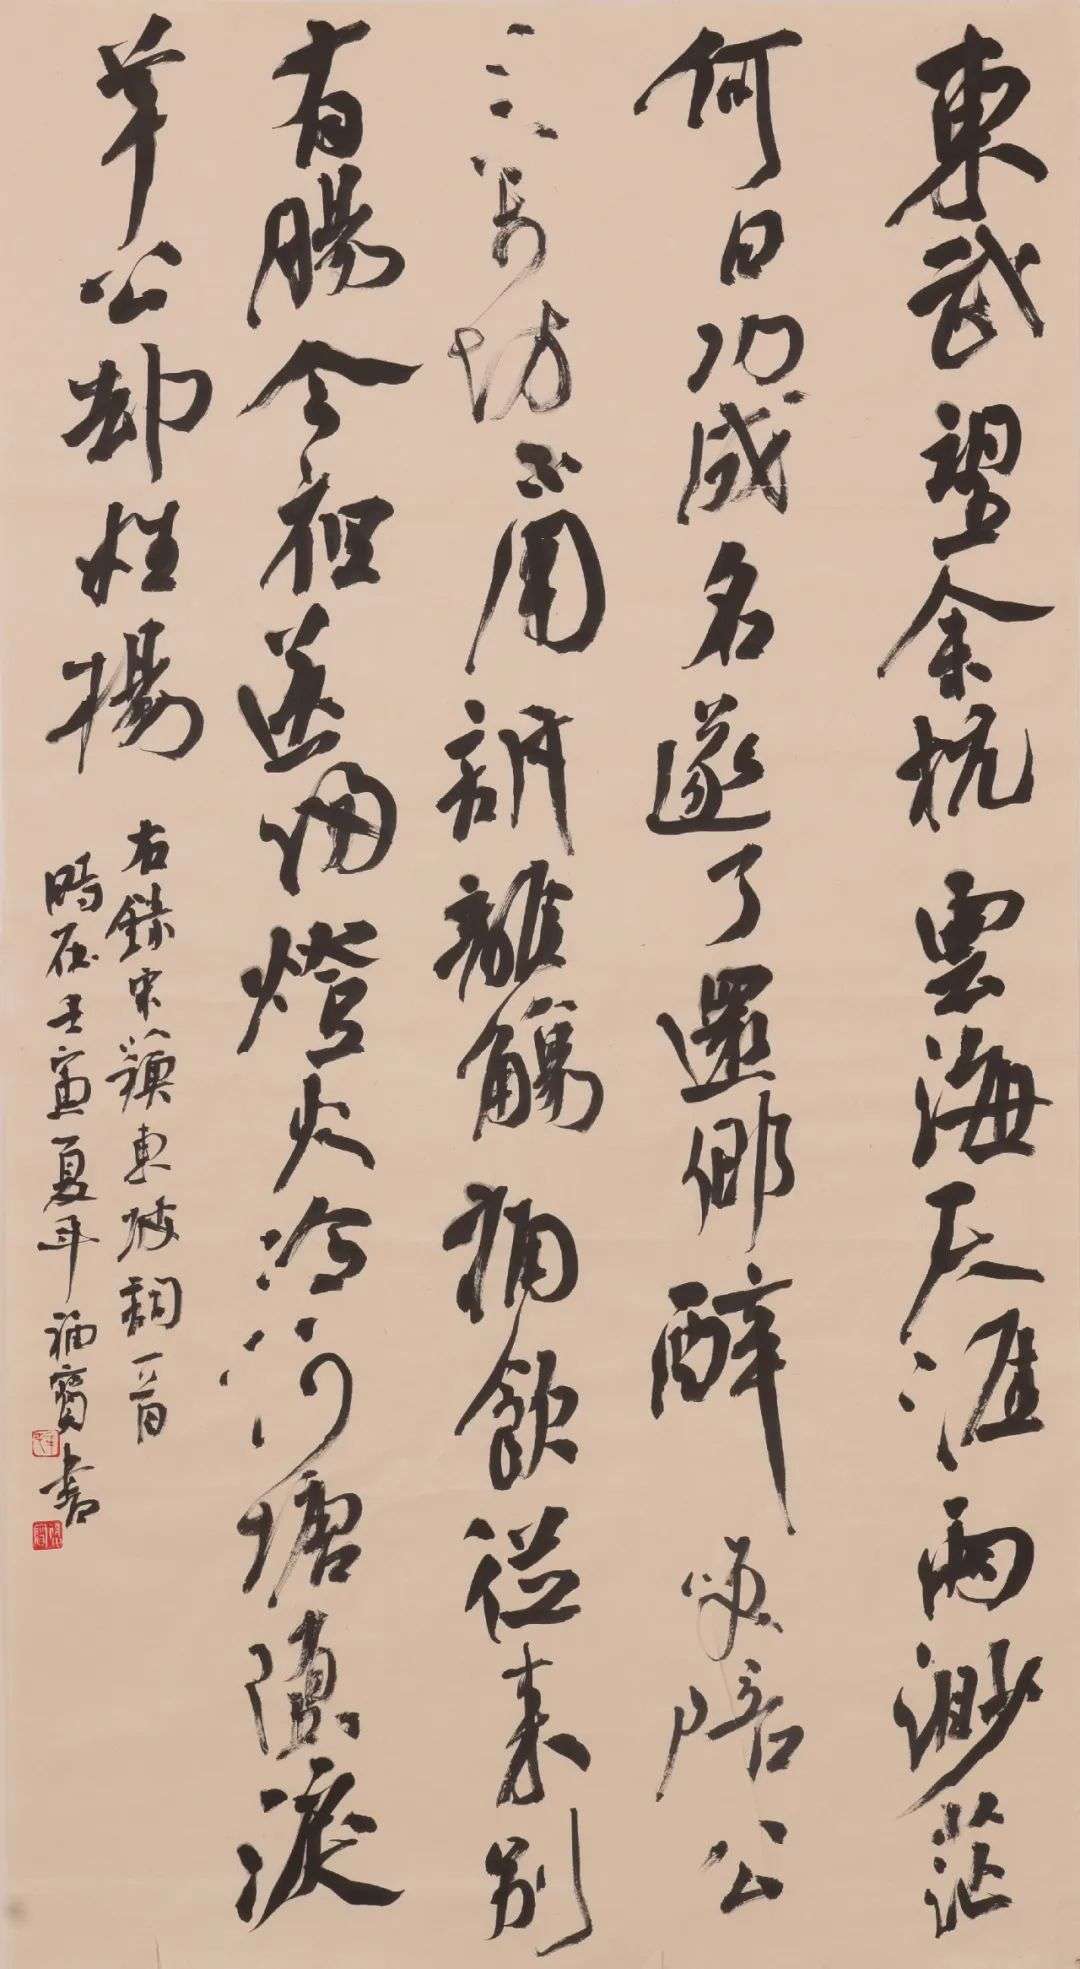 東武望余杭雲海天涯兩渺茫
何日功成名遂了還鄉醉笑陪公
三萬場不用訴離觴痛飲從來別
有腸今夜送歸燈火冷河塘墮淚
羊公却姓楊
右錄宋蘇東坡詞一首
時在壬寅夏年福寶書